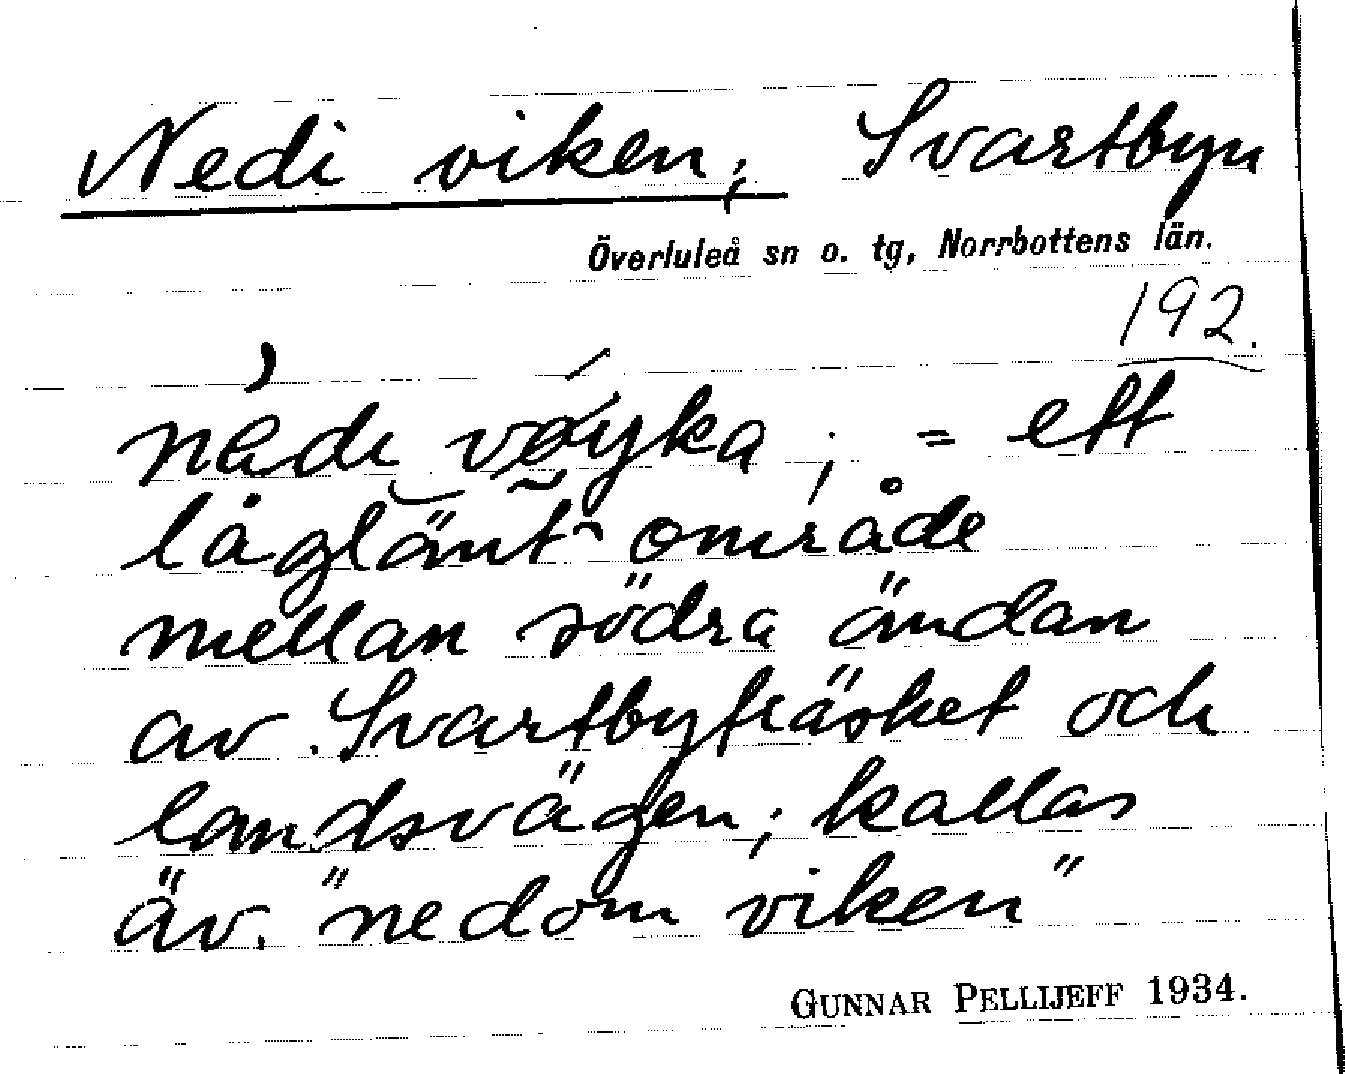 Nedi viken; Svartbyn
Överluleå sn o. tg, Norrbottens län.
192.
nèdi vǿyka; = ett
låglänt område
mellan södra ändan
av Svartbyträsket och
landsvägen; kallas
äv. "nedom viken"
GUNNAR PELLIJEFF 1934.